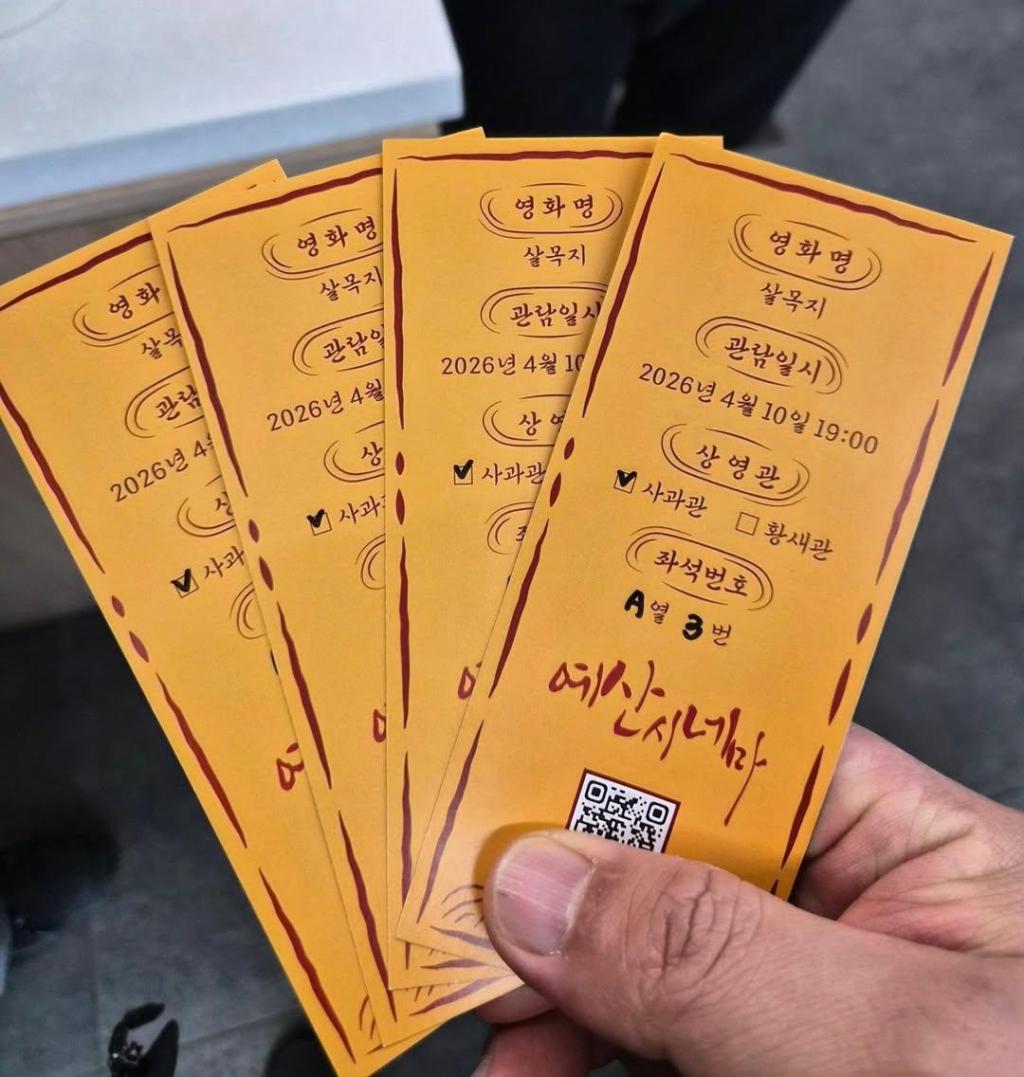 영화
살목
관람
2026년 4
상
사과
영화명
살목지
관람일
2026년 4월
상
사과관
영화명
살목지
관람일시
2026년 4월 10
상영
사과관
영화명
살목지
관람일시
2026년 4월 10일 19:00
상영관
사과관 황새관
좌석번호
A열 3번
예산시네마